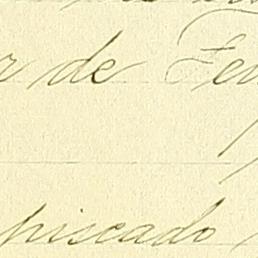 r de Fe
piscado